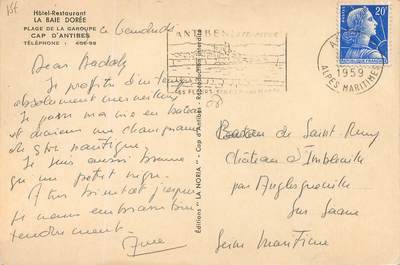 Hôtel-Restaurant
LA BAIE DORÉE
PLAGE DE LA GAROUPE
CAP D'ANTIBES
TÉLÉPHONE : 406-98
ce vendredi
Dear Daddy
Je profite d'un temps
absolument merveilleux
Je passe ma vie en bateau
et deviens une championne
de ski nautique.
Je suis aussi brune
qu'un petit nègre.
A très bientôt j'espère
Je vous embrasse bien
tendrement.
Anne
Éditions "LA NORIA" - Cap d'Antibes - Reproduction interdite
ANTIBES
1959
ALPES MARITIMES
20F
Baron de Saint-Remy
Château d'Imbleville
par Anglesqueville
sur Saane
Seine Maritime